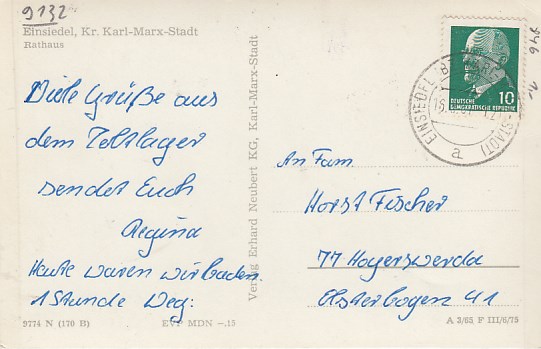 9132
Einsiedel, Kr. Karl-Marx-Stadt
Rathaus
Viele Grüße aus
dem Zeltlager
sendet Euch
Regina
Heute waren wir baden
1 Stunde Weg.
9774 N (170 B) EVP MDN –,15
Verlag Erhard Neubert KG, Karl-Marx-Stadt
DEUTSCHE
DEMOKRATISCHE REPUBLIK
10
EINSIEDEL
STADT)
a
An Fam.
Horst Fischer
77 Hoyerswerda
Elsterbogen 41
A 3/65 F III/6/75